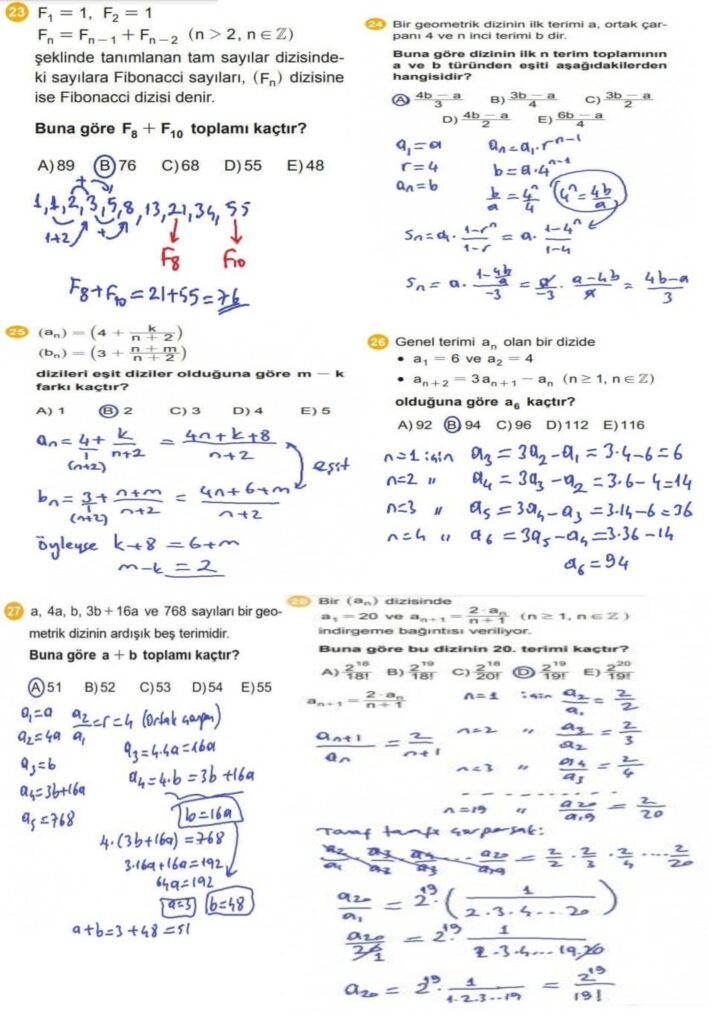 23 F₁ = 1, F₂ = 1
Fₙ = Fₙ₋₁ + Fₙ₋₂ (n > 2, n ∈ ℤ)
şeklinde tanımlanan tam sayılar dizisinde-
ki sayılara Fibonacci sayıları, (Fₙ) dizisine
ise Fibonacci dizisi denir.
Buna göre F₈ + F₁₀ toplamı kaçtır?
A) 89 B) 76 C) 68 D) 55 E) 48
1, 1, 2, 3, 5, 8, 13, 21, 34, 55
1+2 + +
F₈ F₁₀
F₈+F₁₀ = 21+55 = 76
24 Bir geometrik dizinin ilk terimi a, ortak çar-
panı 4 ve n inci terimi b dir.
Buna göre dizinin ilk n terim toplamının
a ve b türünden eşiti aşağıdakilerden
hangisidir?
A) (4b − a)/3 B) (3b − a)/4 C) (3b − a)/2
D) (4b − a)/2 E) (6b − a)/4
a₁ = a aₙ = a₁·rⁿ⁻¹
r = 4 b = a·4ⁿ⁻¹
aₙ = b b/a = 4ⁿ/4 4ⁿ = 4b/a
Sₙ = a₁·(1−rⁿ)/(1−r) = a·(1−4ⁿ)/(1−4)
Sₙ = a·(1−4b/a)/−3 = a/−3·(a−4b)/a = (4b−a)/3
25 (aₙ) = (4 + k/(n + 2))
(bₙ) = (3 + (n + m)/(n + 2))
dizileri eşit diziler olduğuna göre m − k
farkı kaçtır?
A) 1 B) 2 C) 3 D) 4 E) 5
aₙ = 4/1 + k/(n+2) = (4n+k+8)/(n+2)
(n+2)
eşit
bₙ = 3/1 + (n+m)/(n+2) = (4n+6+m)/(n+2)
(n+2)
öyleyse k+8 = 6+m
m−k = 2
26 Genel terimi aₙ olan bir dizide
• a₁ = 6 ve a₂ = 4
• aₙ₊₂ = 3aₙ₊₁ − aₙ (n ≥ 1, n ∈ ℤ)
olduğuna göre a₆ kaçtır?
A) 92 B) 94 C) 96 D) 112 E) 116
n=1 için a₃ = 3a₂−a₁ = 3·4−6 = 6
n=2 " a₄ = 3a₃−a₂ = 3·6−4 = 14
n=3 " a₅ = 3a₄−a₃ = 3·14−6 = 36
n=4 " a₆ = 3a₅−a₄ = 3·36−14
a₆ = 94
27 a, 4a, b, 3b + 16a ve 768 sayıları bir geo-
metrik dizinin ardışık beş terimidir.
Buna göre a + b toplamı kaçtır?
A) 51 B) 52 C) 53 D) 54 E) 55
a₁=a a₂/a₁ = r = 4 (Ortak çarpan)
a₂=4a
a₃=b a₃=4·4a=16a
a₄=3b+16a a₄=4·b=3b+16a
a₅=768 b=16a
4·(3b+16a)=768
3·16a+16a=192
64a=192
a=3 b=48
a+b=3+48=51
28 Bir (aₙ) dizisinde
a₁ = 20 ve aₙ₊₁ = (2·aₙ)/(n + 1) (n ≥ 1, n ∈ ℤ)
indirgeme bağıntısı veriliyor.
Buna göre bu dizinin 20. terimi kaçtır?
A) 2¹⁸/18! B) 2¹⁹/18! C) 2¹⁸/20! D) 2¹⁹/19! E) 2²⁰/19!
aₙ₊₁ = (2·aₙ)/(n + 1) n=1 için a₂/a₁ = 2/2
aₙ₊₁/aₙ = 2/(n+1) n=2 " a₃/a₂ = 2/3
n=3 " a₄/a₃ = 2/4
n=19 " a₂₀/a₁₉ = 2/20
Taraf tarafa çarparsak:
a₂/a₁ · a₃/a₂ · a₄/a₃ ... a₂₀/a₁₉ = 2/2 · 2/3 · 2/4 ... 2/20
a₂₀/a₁ = 2¹⁹·(1/(2·3·4...20))
a₂₀/20 = 2¹⁹·1/(2·3·4...19·20)
1
a₂₀ = 2¹⁹·1/(1·2·3...19) = 2¹⁹/19!